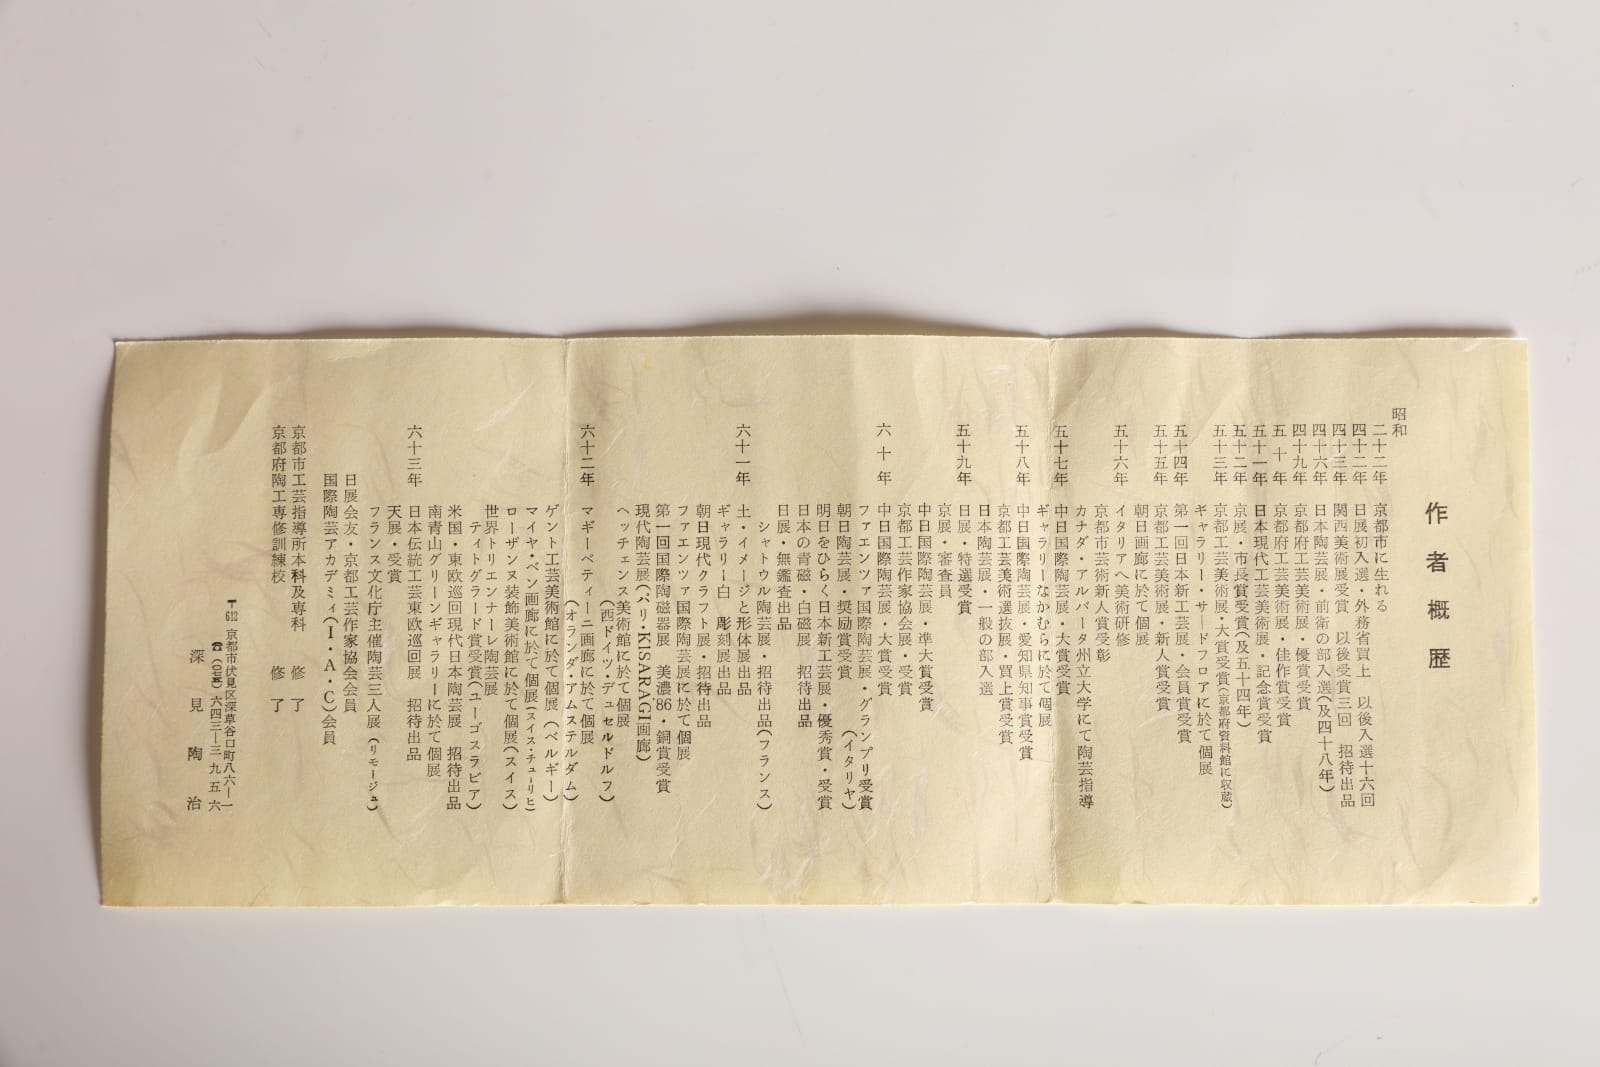 作者概歴
昭和
二十二年 京都市に生れる
四十二年 日展初入選・外務省買上 以後入選十六回
四十三年 関西美術展受賞 以後受賞三回 招待出品
四十六年 日本陶芸展・前衛の部入選(及四十八年)
四十九年 京都府工芸美術展・優賞受賞
五十年 京都府工芸美術展・佳作賞受賞
五十一年 日本現代工芸美術展・記念賞受賞
五十二年 京展・市長賞受賞(及五十四年)
五十三年 京都工芸美術展・大賞受賞(京都府資料館に収蔵)
ギャラリー・サードフロアに於て個展
五十四年 第一回日本新工芸展・会員賞受賞
五十五年 京都工芸美術展・新人賞受賞
朝日画廊に於て個展
五十六年 イタリアへ美術研修
京都市芸術新人賞受彰
カナダ・アルバータ州立大学にて陶芸指導
五十七年 中日国際陶芸展・大賞受賞
ギャラリーなかむらに於て個展
五十八年 中日国際陶芸展・愛知県知事賞受賞
京都工芸美術選抜展・買上賞受賞
日本陶芸展・一般の部入選
五十九年 日展・特選受賞
京展・審査員
中日国際陶芸展・準大賞受賞
京都工芸作家協会展・受賞
六十年 中日国際陶芸展・大賞受賞
ファエンツァ国際陶芸展・グランプリ受賞
(イタリヤ)
朝日陶芸展・奨励賞受賞
明日をひらく日本新工芸展・優秀賞・受賞
日本の青磁・白磁展 招待出品
日展・無鑑査出品
シャトウル陶芸展・招待出品(フランス)
六十一年 土・イメージと形体展出品
ギャラリー白 彫刻展出品
朝日現代クラフト展・招待出品
ファエンツァ国際陶芸展に於て個展
第一回国際陶磁器展 美濃'86・銅賞受賞
現代陶芸展(パリ・KISARAGI画廊)
ヘッチェンス美術館に於て個展
(西ドイツ・デュセルドルフ)
六十二年 マギーベティーニ画廊に於て個展
(オランダ・アムステルダム)
ゲント工芸美術館に於て個展(ベルギー)
マイヤ・ベン画廊に於て個展(スイス・チューリヒ)
ローザンヌ装飾美術館に於て個展(スイス)
世界トリエンナーレ陶芸展
ティトグラード賞受賞(ユーゴスラビア)
米国・東欧巡回現代日本陶芸展 招待出品
南青山グリーンギャラリーに於て個展
六十三年 日本伝統工芸東欧巡回展 招待出品
天展・受賞
フランス文化庁主催陶芸三人展(リモージュ)
日展会友・京都工芸作家協会会員
国際陶芸アカデミィ(I・A・C)会員
京都市工芸指導所本科及専科 修了
京都府陶工専修訓練校 修了
〒612 京都市伏見区深草谷口町八六―一
☎(〇七五)六四三―三九五六
深見陶治